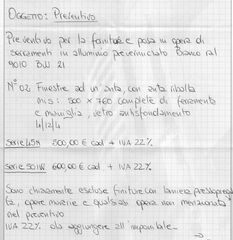 OGGETTO: Preventivo
Preventivo per la fornitura e posa in opera di
serramenti in alluminio preverniciato Bianco ral
9010 BU 21
N° 02 Finestre ad un'anta, con anta ribalta
mis: 500 x 760 complete di ferramenta
e maniglia, vetro antisfondamento
4/12/4
Serie 45N 500,00 € cad + IVA 22%
Serie 50IW 600,00 € cad + IVA 22%
Sono chiaramente escluse finiture con lamiera pressopiega
ta, opere murarie e qualsiasi opera non menzionata
nel preventivo
IVA 22% da aggiungere all'imponibile